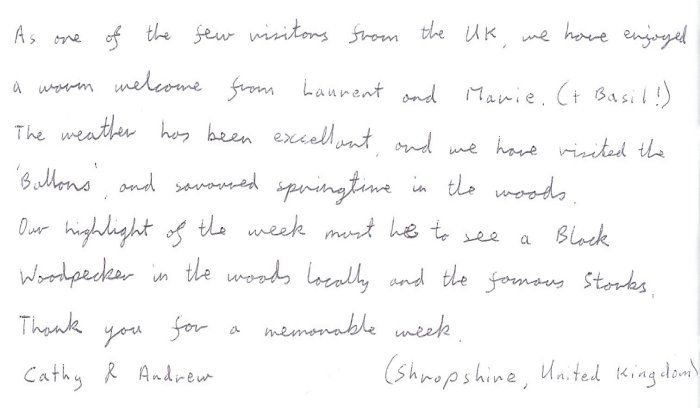 As one of the few visitors from the UK, we have enjoyed
a warm welcome from Laurent and Marie. (+ Basil!)
The weather has been excellant, and we have visited the
'Ballons', and savoured springtime in the woods.
Our highlight of the week must be to see a Black
Woodpecker in the woods locally and the famous Storks.
Thank you for a memorable week.
Cathy & Andrew (Shropshire, United Kingdom)